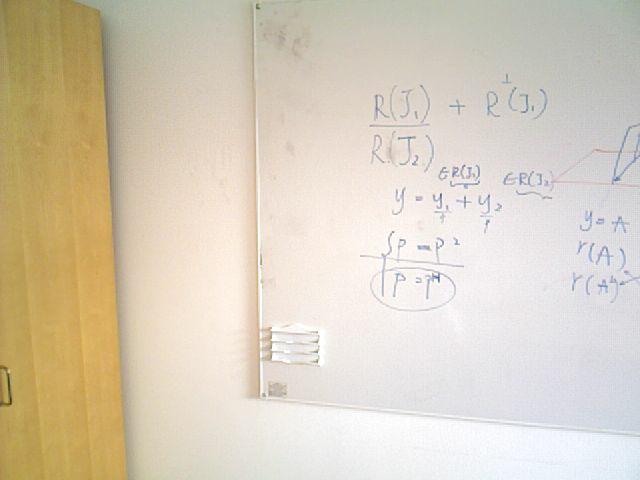 R(J₁) + R⊥(J₁)
R(J₂)
∈R(J₁) ∈R(J₂)
y = y₁ + y₂
P = P²
P = Pᴴ
y = A
r(A)
r(A